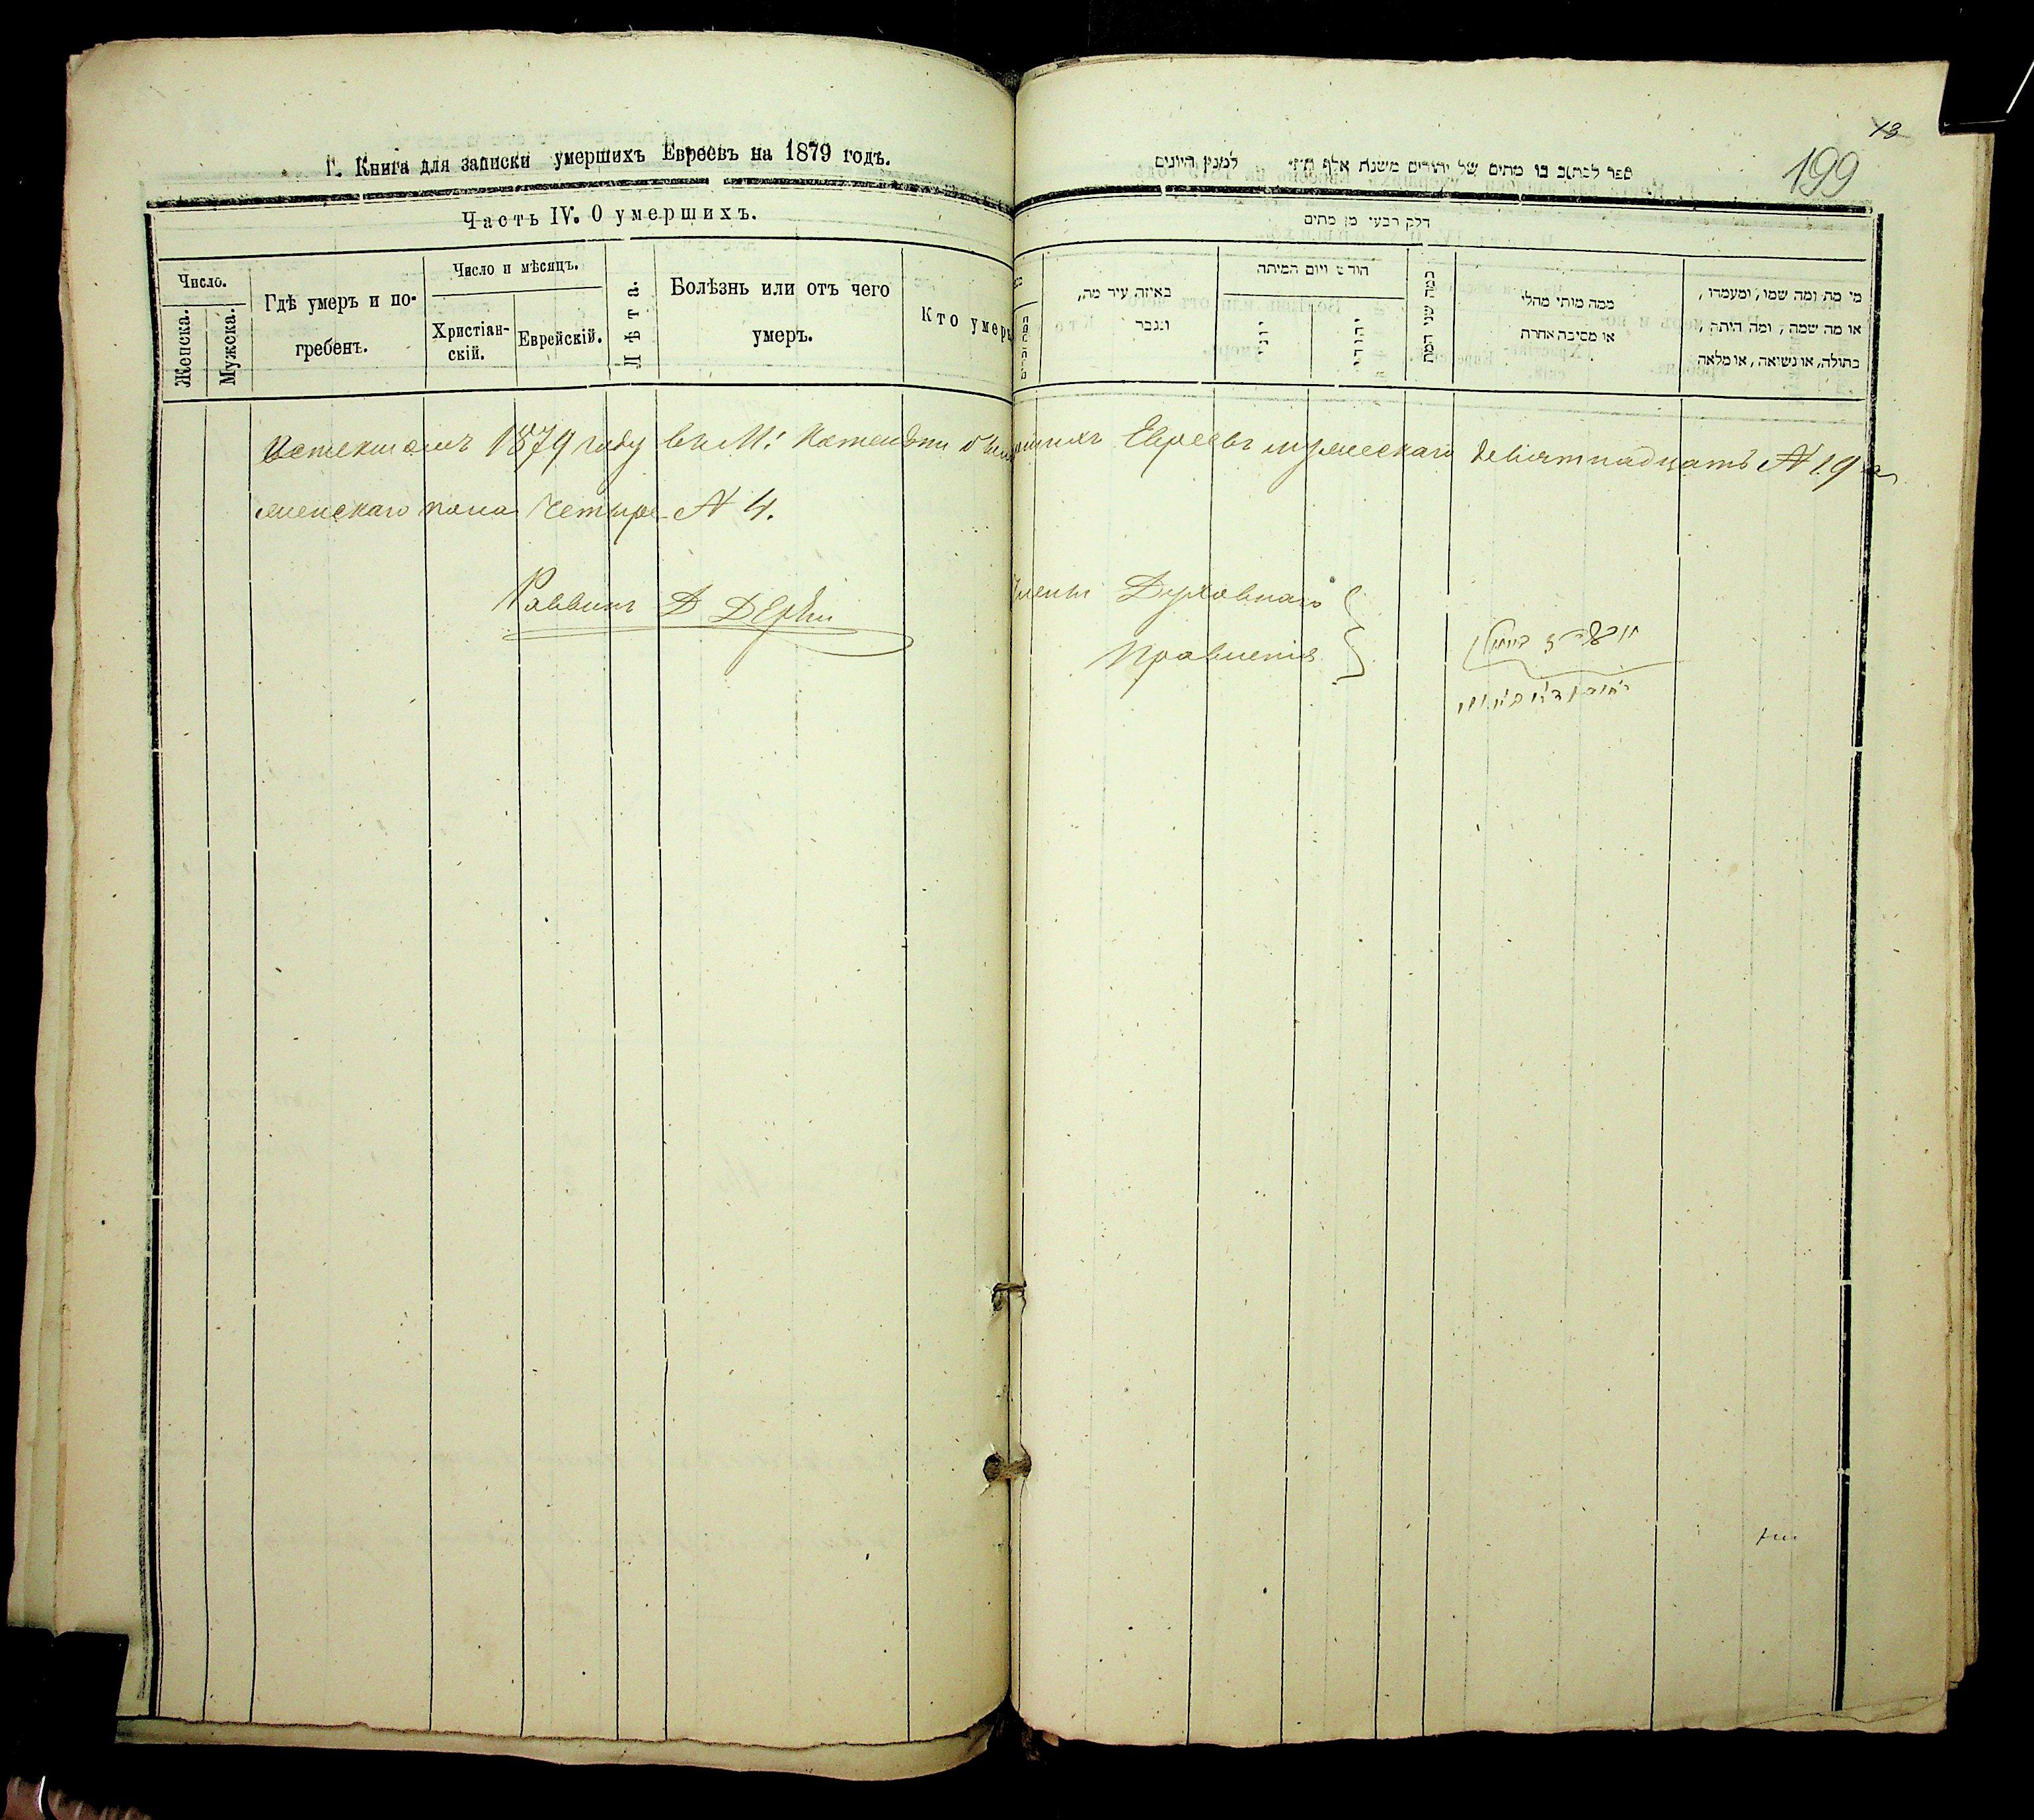 Г. Книга для записки умершихъ Евреевъ на 1879 годъ.
Часть IV. О умершихъ.
Число.
Женска.
Мужска.
Гдѣ умеръ и по-
гребенъ.
Число и мѣсяцъ.
Христіан-
скій.
Еврейскій.
Лѣта.
Болѣзнь или отъ чего
умеръ.
Кто умеръ
13
199
ספר לכתוב בו מתים של יהודים משנת אלף תת״ למנין היונים
חלק רבעי מן מתים
באיזה עיר מת,
ונגבר
חודש ויום המיתה
יוני
יהודי
כמה שני המת
ממה מותי מחלי
או מסיבה אחרת
מי מת ומה שמו, ומעמדו,
או מה שמה, ומה היתה,
בתולה, או נשואה, או מלאה
Истекшомъ 1879 году въ М. Евреевъ мужескаго девятнадцать № 19 а
женскаго пола Четыре № 4.
Раввинъ Д
Члены Духовнаго
Правленія